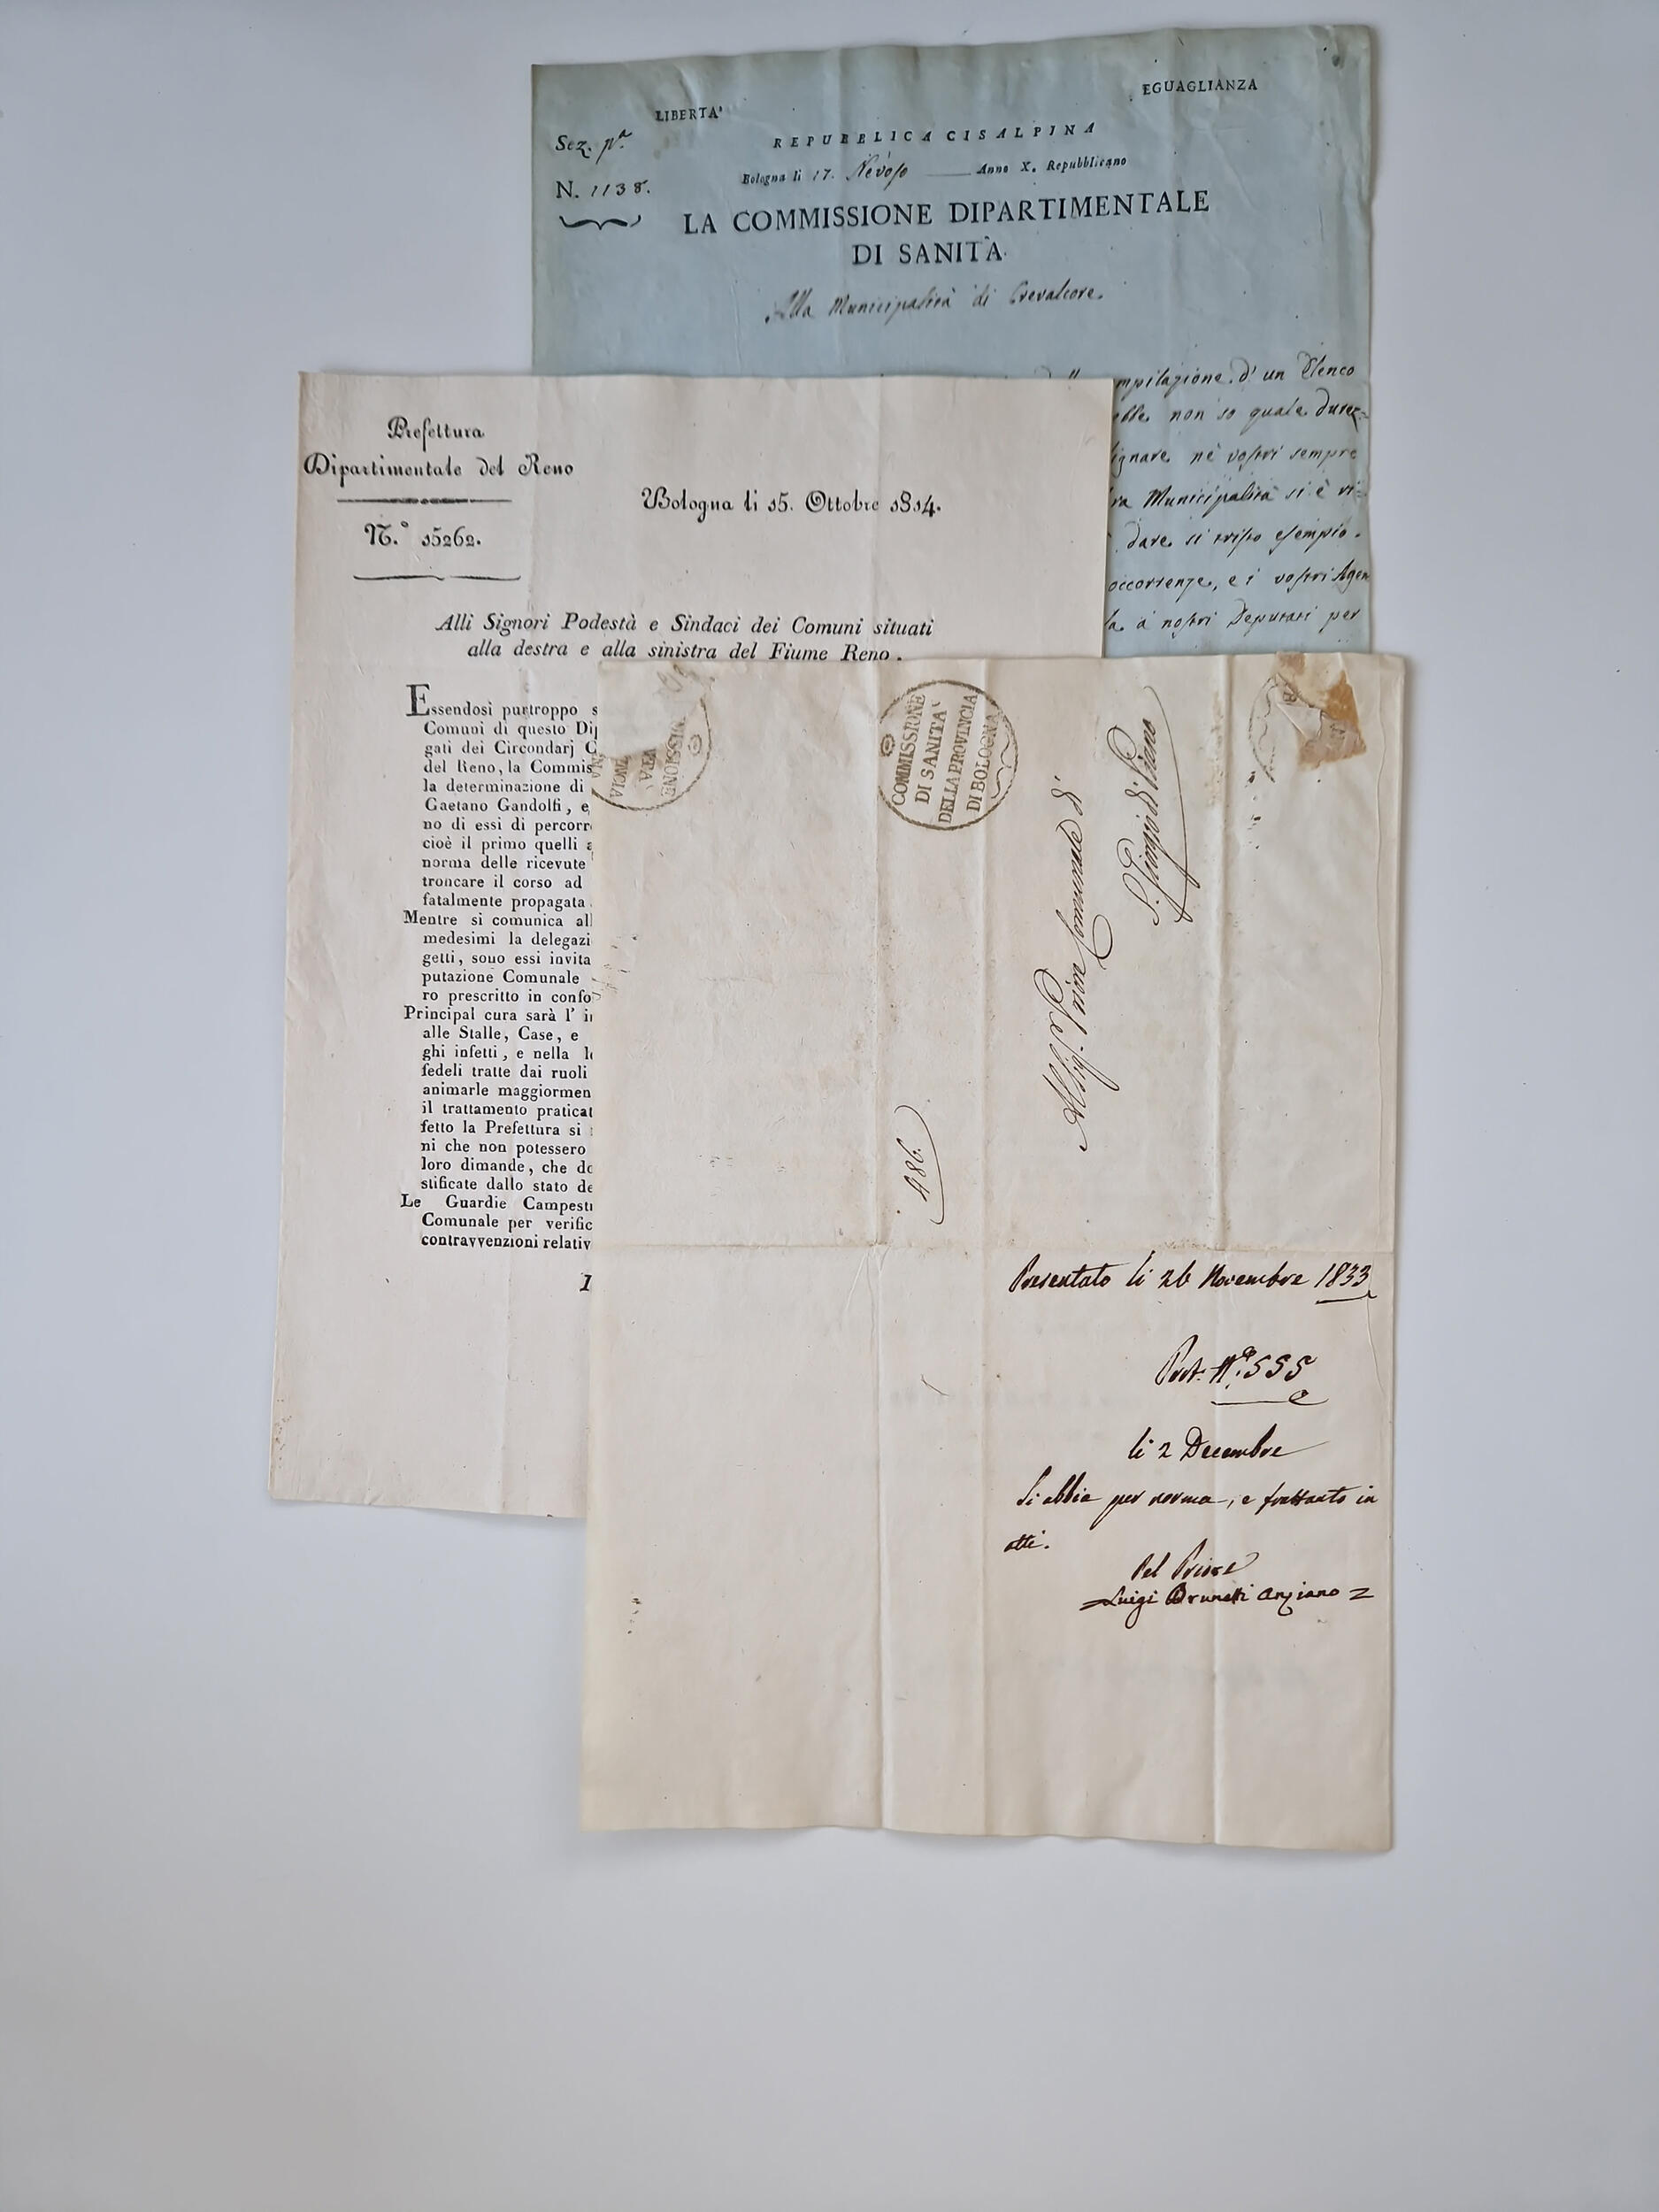 LIBERTA'
EGUAGLIANZA
Sez. pª
REPUBBLICA CISALPINA
N. 1138.
Bologna li 17. Nevoso Anno X. Repubblicano
LA COMMISSIONE DIPARTIMENTALE
DI SANITÀ
Alla Municipalità di Crevalcore.
mpilazione d' un Elenco
ebbe non so quale durez=
ignare nè vostri sempre
ra Municipalità si è vi=
dare si tristo esempio.
occorrenze, e i vostri Agen
la a nostri Deputati per
Prefettura
Dipartimentale del Reno
N.° 15262.
Bologna li 15. Ottobre 1814.
Alli Signori Podestà e Sindaci dei Comuni situati
alla destra e alla sinistra del Fiume Reno.
Essendosi purtroppo s
Comuni di questo Dip
gati dei Circondarj C
del Reno, la Commis
la determinazione di
Gaetano Gandolfi, e
no di essi di percorr
cioè il primo quelli a
norma delle ricevute
troncare il corso ad
fatalmente propagata
Mentre si comunica all
medesimi la delegazi
getti, sono essi invita
putazione Comunale
ro prescritto in confo
Principal cura sarà l' i
alle Stalle, Case, e
ghi infetti, e nella l
fedeli tratte dai ruoli
animarle maggiormen
il trattamento praticat
fetto la Prefettura si
ni che non potessero
loro dimande, che do
stificate dallo stato de
Le Guardie Campest
Comunale per verific
contravvenzioni relativ
MISSIONE
ITA'
INCIA
NA
COMMISSIONE
DI SANITA'
DELLA PROVINCIA
DI BOLOGNA
Al Sig. Priore Comunale di
S. Giorgio di Piano
486.
Presentato li 26 Novembre 1833
Prot. Nº 555
li 2 Decembre
Si abbia per norma, e frattanto in
atti.
Pel Priore
Luigi Brunetti Anziano